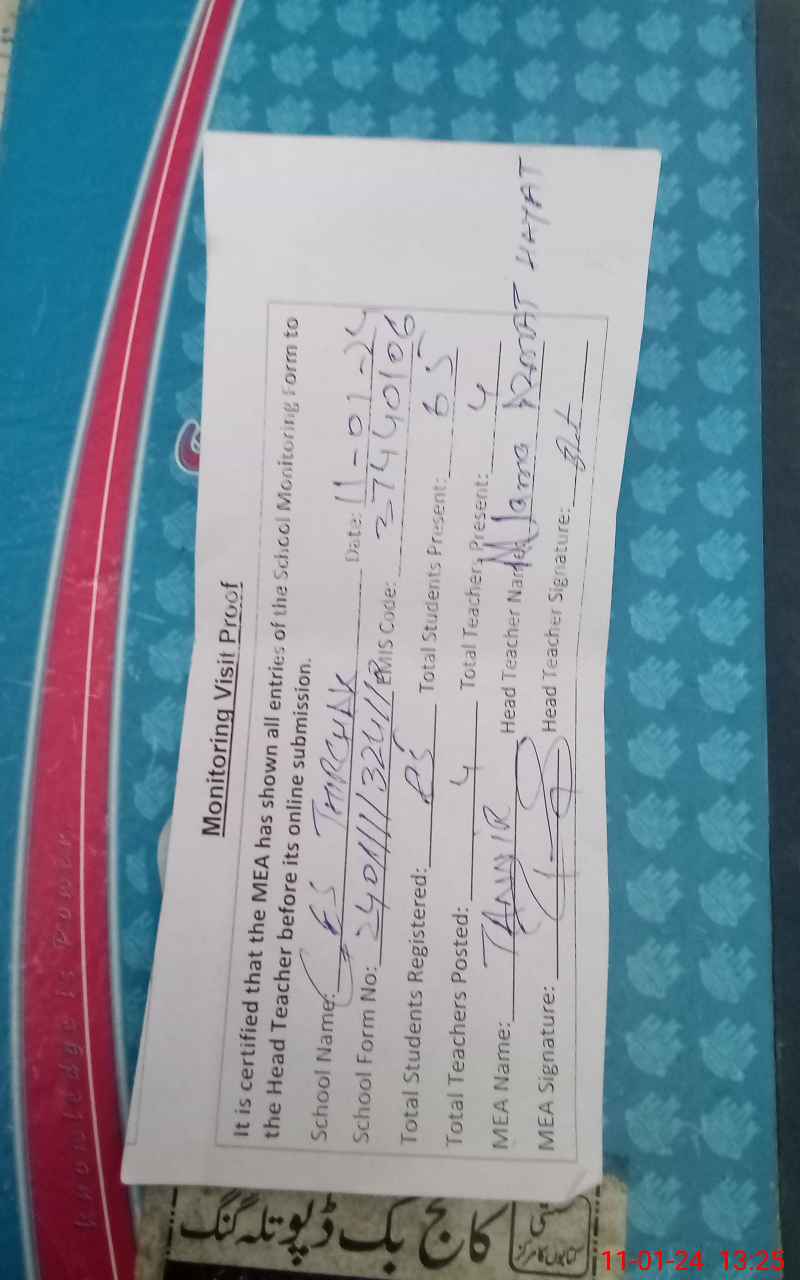 Monitoring Visit Proof
It is certified that the MEA has shown all entries of the School Monitoring Form to
the Head Teacher before its online submission.
School Name: GES THARCHAK Date: 11-01-24
School Form No: EMIS Code: 37440106
Total Students Registered: 85 Total Students Present: 65
Total Teachers Posted: 4 Total Teachers Present: 4
MEA Name: TANVIR Head Teacher Name: AZMAT HAYAT
MEA Signature: Head Teacher Signature:
knowledge is power
کالج بک ڈپو تلہ گنگ
11-01-24 13:25